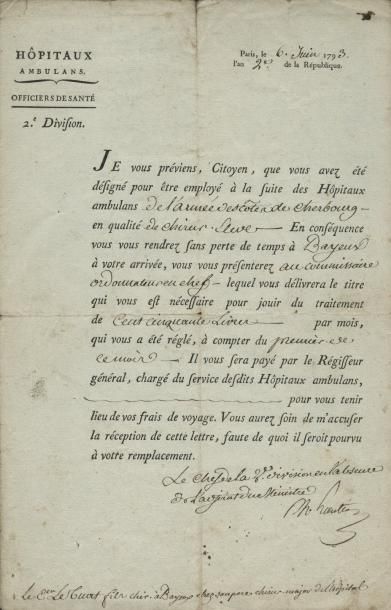 HÔPITAUX
AMBULANS.
OFFICIERS DE SANTÉ
2.e Division.
Paris, le 6. Juin 1793
l'an 2e. de la République.
JE vous préviens, Citoyen, que vous avez été
désigné pour être employé à la suite des Hôpitaux
ambulans de l'armée des Côtes de Cherbourg
en qualité de chirur. Eleve — En conséquence
vous vous rendrez sans perte de temps à Bayeux
à votre arrivée, vous vous présenterez au commissaire
ordonnateur en chef — lequel vous délivrera le titre
qui vous est nécessaire pour jouir du traitement
de Cent cinquante Livres — par mois,
qui vous a été réglé, à compter du premier de
ce mois — Il vous sera payé par le Régisseur
général, chargé du service desdits Hôpitaux ambulans,
pour vous tenir
lieu de vos frais de voyage. Vous aurez soin de m'accuser
la réception de cette lettre, faute de quoi il seroit pourvu
à votre remplacement.
Le chef de la 2e. division en l'absence
de l'adjoint du Ministre
Le Cen. fils chir. à Bayeux chez son pere chirur. major de l'hôpital